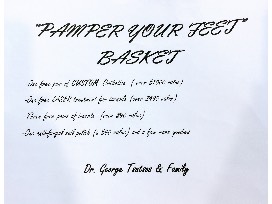 "PAMPER YOUR FEET"
BASKET
-One free pair of CUSTOM Orthotics (over $1000 value)
-One free LASER treatment for (over value)
-Three free pairs of (over value)
-One antifungal nail polish (a $40 value) and a few more goodies
Dr. George Tsatsos & Family